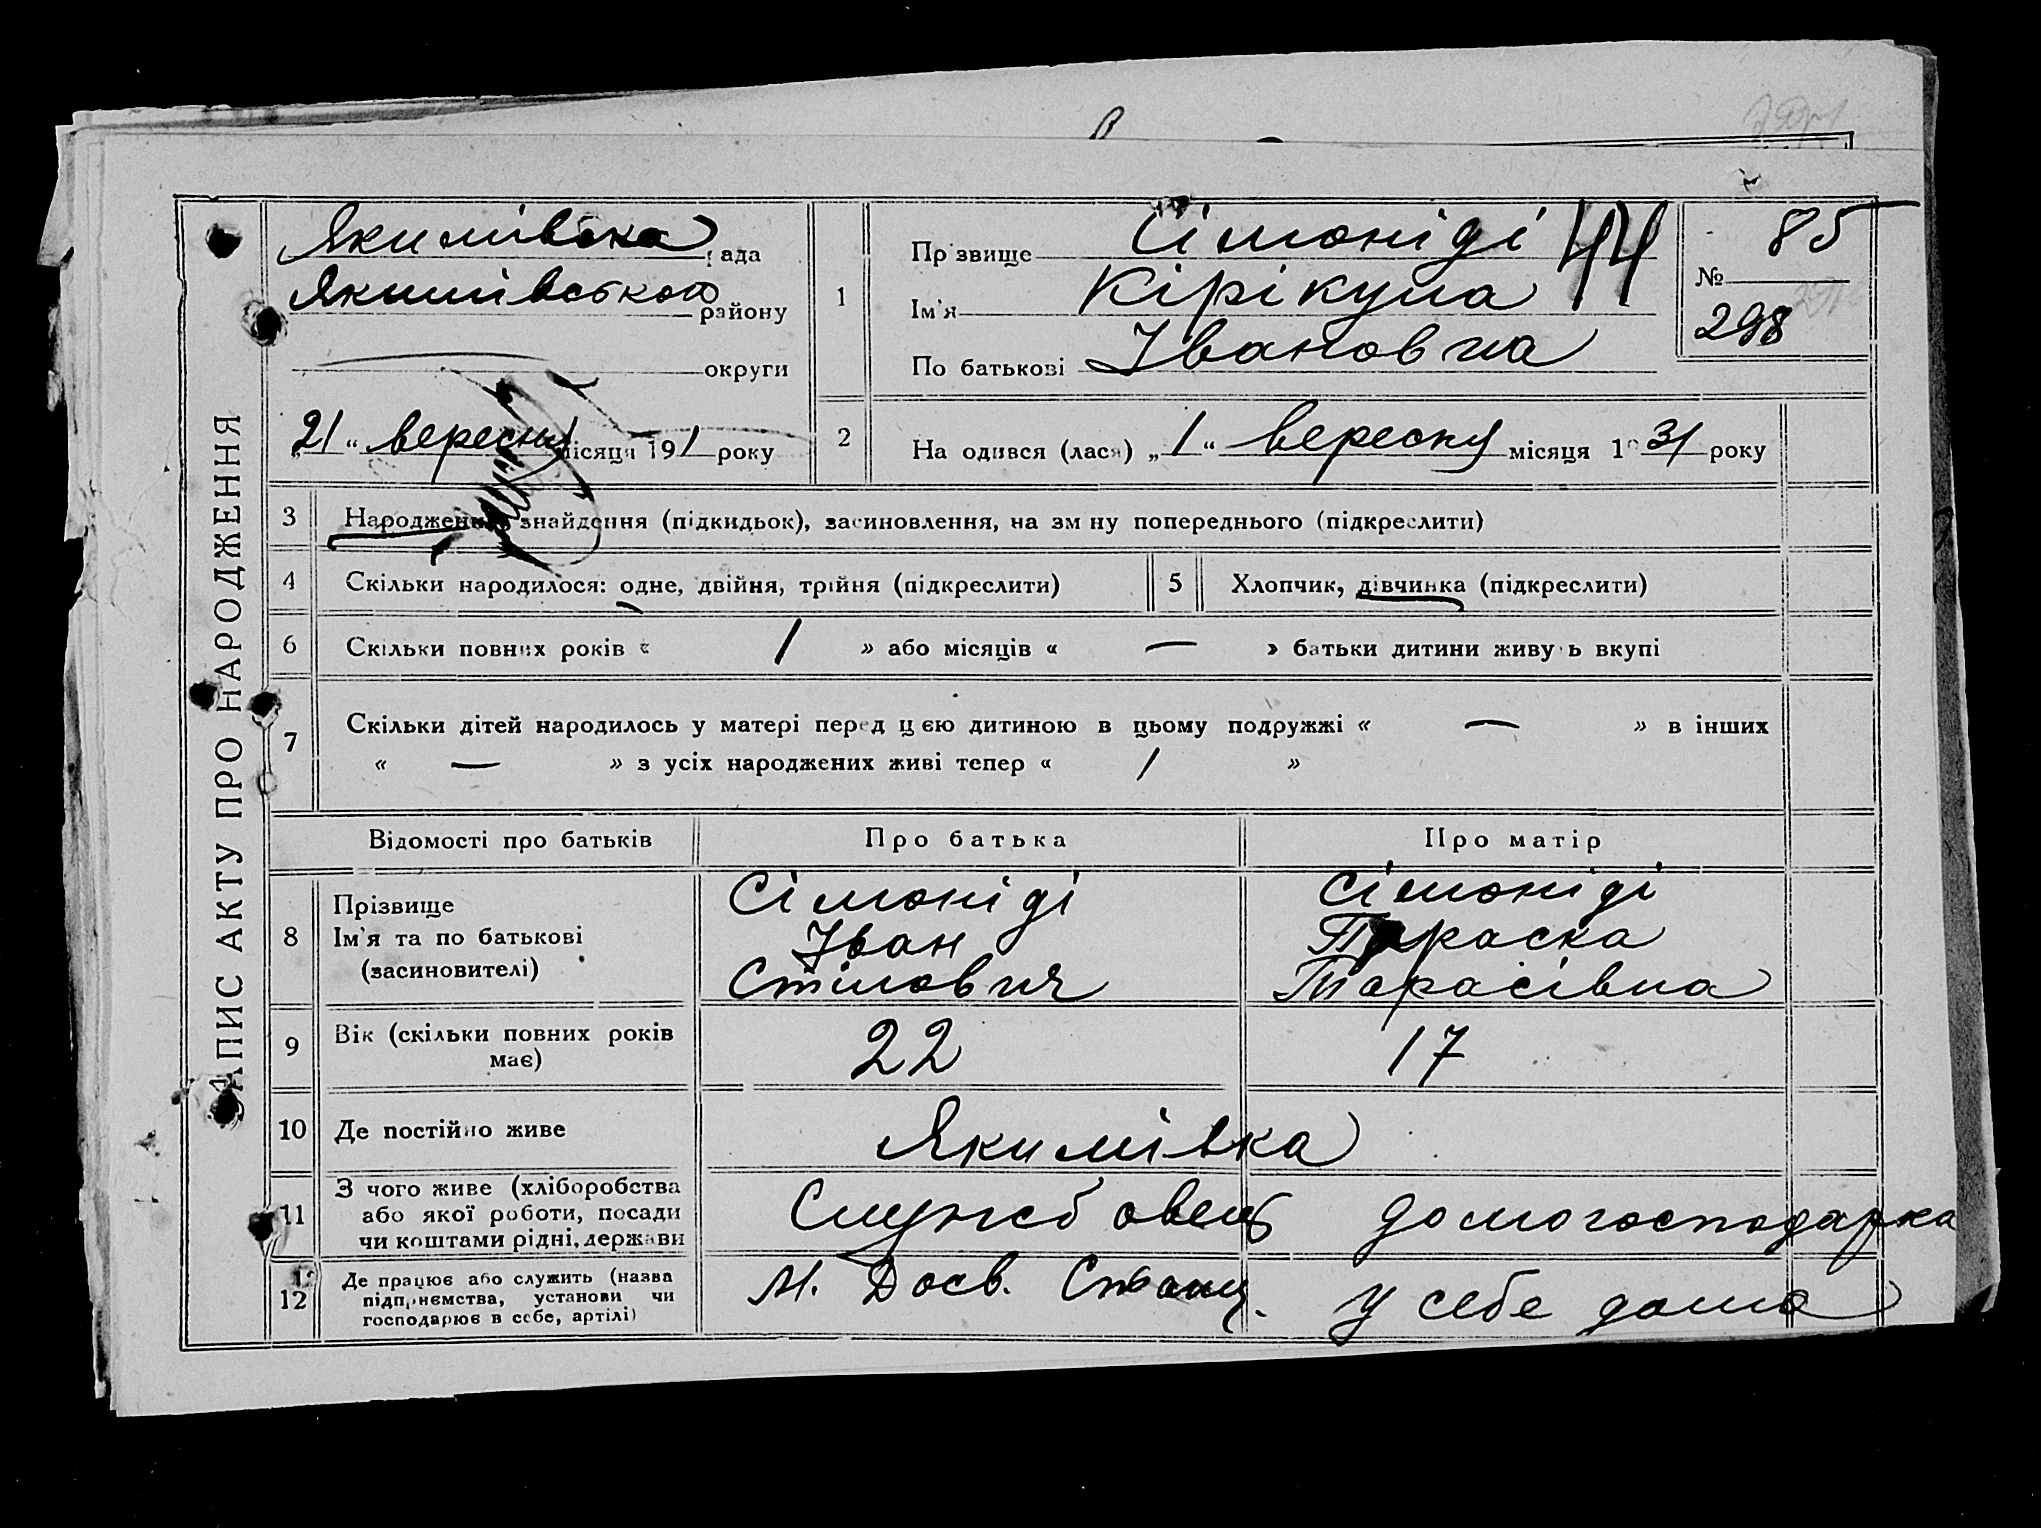 ЗАПИС АКТУ ПРО НАРОДЖЕННЯ
Якимівська рада
Якимівського району
округи
„21“ вересня місяця 191 року
1
Прізвище Сімоніді
Ім'я Кірікула
По батькові Івановна
44
85
№
298
2
Народився (лася) „1“ вересня місяця 1931 року
3 Народження, знайдення (підкидьок), засиновлення, на зміну попереднього (підкреслити)
4 Скільки народилося: одне, двійня, трійня (підкреслити)
5 Хлопчик, дівчинка (підкреслити)
6 Скільки повних років « 1 » або місяців « — » батьки дитини живуть вкупі
7 Скільки дітей народилось у матері перед цією дитиною в цьому подружжі « — » в інших
« — » з усіх народжених живі тепер « 1 »
Відомості про батьків Про батька Про матір
8 Прізвище
Ім'я та по батькові
(засиновителі)
Сімоніді
Іван
Стілович
Сімоніді
Параска
Тарасівна
9 Вік (скільки повних років має) 22 17
10 Де постійно живе Якимівка
11 З чого живе (хліборобства
або якої роботи, посади
чи коштами рідні, держави
Службовець домогосподарка
12 Де працює або служить (назва
підприємства, установи чи
господарює в себе, артілі)
М. Досв. Станц. У себе дома